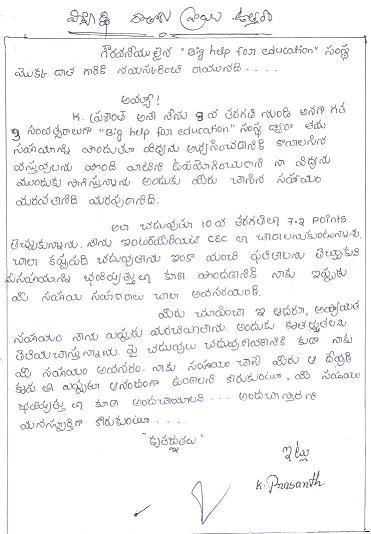 విద్యార్థి దాతలకు వ్రాయు ఉత్తరం
గౌరవనీయులైన "Big help for education" సంస్థ
యొక్క దాత గారికి నమస్కరించి వ్రాయునది....
అయ్యా!
K. ప్రశాంత్ అనే నేను 8 వ తరగతి నుండి అనగా గత
సంవత్సరాలుగా "Big help for education" సంస్థ ద్వారా తమ
సహాయాన్ని పొందుతూ విద్యను అభ్యసించడానికి కావాలసిన
వస్తువులను పొంది వాటిని ఉపయోగించుకొని నా విద్యను
ముందుకు సాగిస్తున్నాను అందుకు మీరు చేసిన సహాయం
మరువలేనిది మరపురానిది.
అలా చదువుతూ 10వ తరగతిలో 7.2 points
తెచ్చుకున్నాను. నేను ఇంటర్మీడియట్ CEC లో చేరాలనుకుంటున్నాను.
చాలా కష్టపడి చదువుతాను ఇంకా మంచి ఫలితాలను తెచ్చుకుని
మీ సహాయాన్ని భవిష్యత్తు లో కూడా పొందడానికి నాకు ఇప్పుడు
మీ సహాయ సహకారాలు చాలా అవసరమండి.
మీరు చూపించే ఈ ఆదరణ,
సహాయం నేను ఎప్పుడు మరచిపోలేను. అందుకు కృతజ్ఞతలను
తెలియచేస్తున్నాను. పై చదువులు చదువుకోవడానికి కూడా నాకు
మీ సహాయం అవసరం. నాకు సహాయం చేసే మీరు ఆ దేవుని
కృప తో ఎప్పుడూ ఆనందంగా ఉండాలని కోరుకుంటూ, మీ సహాయం
భవిష్యత్తు లో కూడా అందచేయాలని... అందచేస్తారని
మనస్ఫూర్తిగా కోరుకుంటూ....
"కృతజ్ఞతలు"
ఇట్లు
K. Prasanth